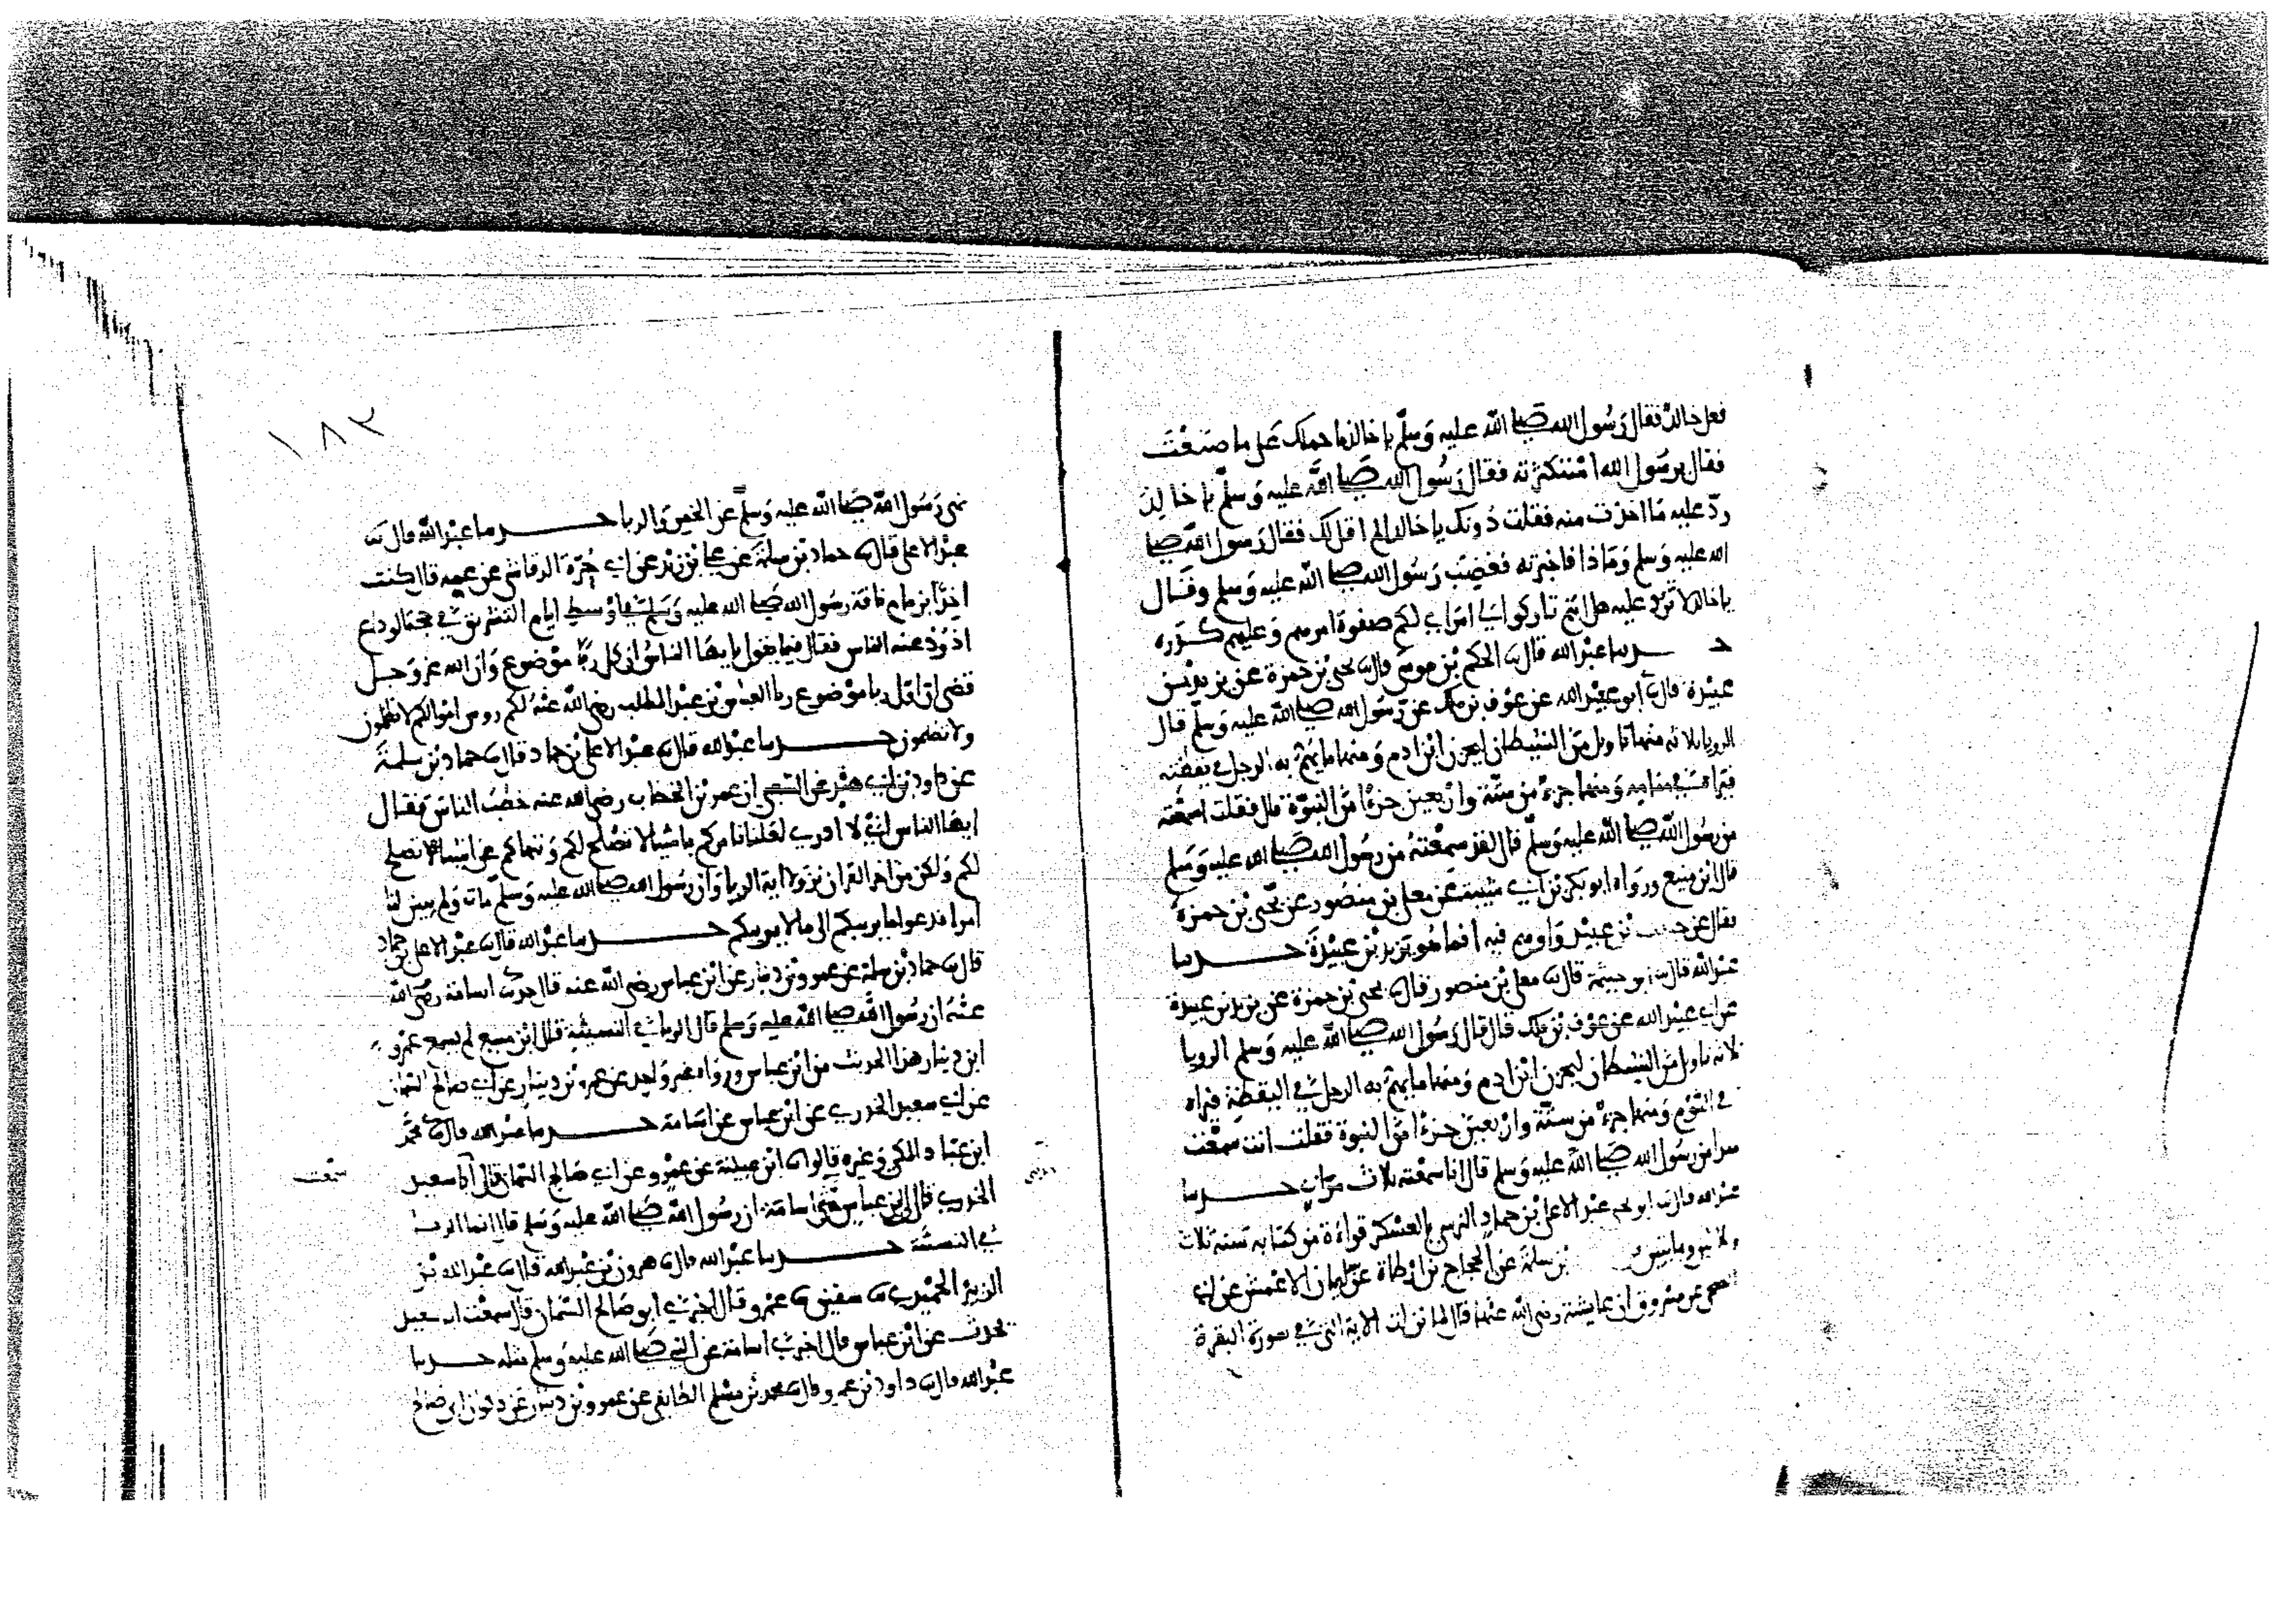 فعل خالد فقال رسول الله صلى الله عليه وسلم يا خالد ما حملك على ما صنعت
فقال يرسول الله استكثرته فقال رسول الله صلى الله عليه وسلم يا خالد
رد عليه ما اخذت منه فقلت دونك يا خالد الم اقل لك فقال رسول الله صلى
الله عليه وسلم وما ذا فاخبرته فغضب رسول الله صلى الله عليه وسلم وقال
يا خالد لا ترد عليه هل انتم تاركوا لي امراي لكم صفوة امرهم وعليهم كدره
حدثنا عبد الله قال نا الحكم بن موسى قال نا يحيى بن حمزة عن يزيد بن
عبيدة قال نا ابو عبيد الله عن عوف بن ملك عن رسول الله صلى الله عليه وسلم قال
الرويا ثلاثة منها تاويل من الشيطان ليحزن ابن ادم ومنها ما يهم به الرجل في يقظته
فيراه في منامه ومنها جزء من ستة واربعين جزءا من النبوة قال فقلت اسمعته
من رسول الله صلى الله عليه وسلم قال لقد سمعته من رسول الله صلى الله عليه وسلم
قال ابن منيع ورواه ابو بكر بن ابي شيبة عن معلى بن منصور عن يحيى بن حمزة
فقال عن بن عبيد واوهم فيه انما هو يزيد بن عبيدة حدثنا
عبد الله قال نا ابو خيثمة قال نا معلى بن منصور قال نا يحيى بن حمزة عن يزيد بن عبيدة
عن ابي عبيد الله عن عوف بن ملك قال قال رسول الله صلى الله عليه وسلم الرويا
ثلاثة تاويل من الشيطان ليحزن ابن ادم ومنها ما يهم به الرجل في اليقظة فيراه
في النوم ومنها جزء من ستة واربعين جزءا من النبوة فقلت انت سمعت
هذا من رسول الله صلى الله عليه وسلم قال انا سمعته ثلاث مرات حدثنا
عبد الله قال نا ابو يحيى عبد الاعلى بن حماد النرسي بالعسكر قراءة من كتابه سنة ثلاث
وثلاثين ومايتين بن سلمة عن الحجاج بن ارطاة عن سليمان الاعمش عن ابي
الضحى عن مسروق ان عايشة رضي الله عنها قالت لما نزلت الاية التي في سورة البقرة
١٨٢
نهى رسول الله صلى الله عليه وسلم عن الخمر والربا حدثنا عبد الله قال نا
عبد الاعلى قال نا حماد بن سلمة عن علي بن زيد عن ابي حرة الرقاشي عن عمه قال كنت
اخذا بزمام ناقة رسول الله صلى الله عليه وسلم في اوسط ايام التشريق في حجة الوداع
اذود عنه الناس فقال فيما يقول يا ايها الناس ان كل ربا موضوع وان الله عز وجل
قضى ان اول ربا موضوع ربا العباس بن عبد المطلب رضي الله عنه لكم روس اموالكم لا تظلمون
ولا تظلمون حدثنا عبد الله قال نا عبد الاعلى بن حماد قال نا حماد بن سلمة
عن داود بن ابي هند عن الشعبي ان عمر بن الخطاب رضي الله عنه خطب الناس فقال
ايها الناس اني لا ادري لعلنا نامركم باشيا لا تصلح لكم وننهاكم عن اشيا تصلح
لكم ولكن من اخر القران نزولا اية الربا وان رسول الله صلى الله عليه وسلم مات ولم يبين لنا
امرا فدعوا ما يريبكم الى ما لا يريبكم حدثنا عبد الله قال نا عبد الاعلى بن حماد
قال نا حماد بن سلمة عن عمرو بن دينار عن ابن عباس رضي الله عنه قال حدثني اسامة رضي الله
عنه ان رسول الله صلى الله عليه وسلم قال الربا في النسيئة قال ابن منيع لم يسمع عمرو
ابن دينار هذا الحديث من ابن عباس ورواه غير واحد عن عمرو بن دينار عن ابي صالح السمان
عن ابي سعيد الخدري عن ابن عباس عن اسامة حدثنا عبد الله قال نا محمد
ابن عباد المكي وغيره قالوا نا ابن عيينة عن عمرو عن ابي صالح السمان قال انا سعيد
سمعت
الخدري قال ابن عباس حدثني اسامة ان رسول الله صلى الله عليه وسلم قال انما الربا
في النسئة حدثنا عبد الله قال نا هرون بن عبد الله قال نا عبد الله بن
الزبير الحميدي نا سفين نا عمرو قال اخبرني ابو صالح السمان قال سمعت ابا سعيد
يحدث عن ابن عباس قال اخبرني اسامة عن النبي صلى الله عليه وسلم مثله حدثنا
عبد الله قال نا داود بن عمرو قال نا محمد بن مسلم الطايفي عن عمرو بن دينار عن ذكوان ابي صالح